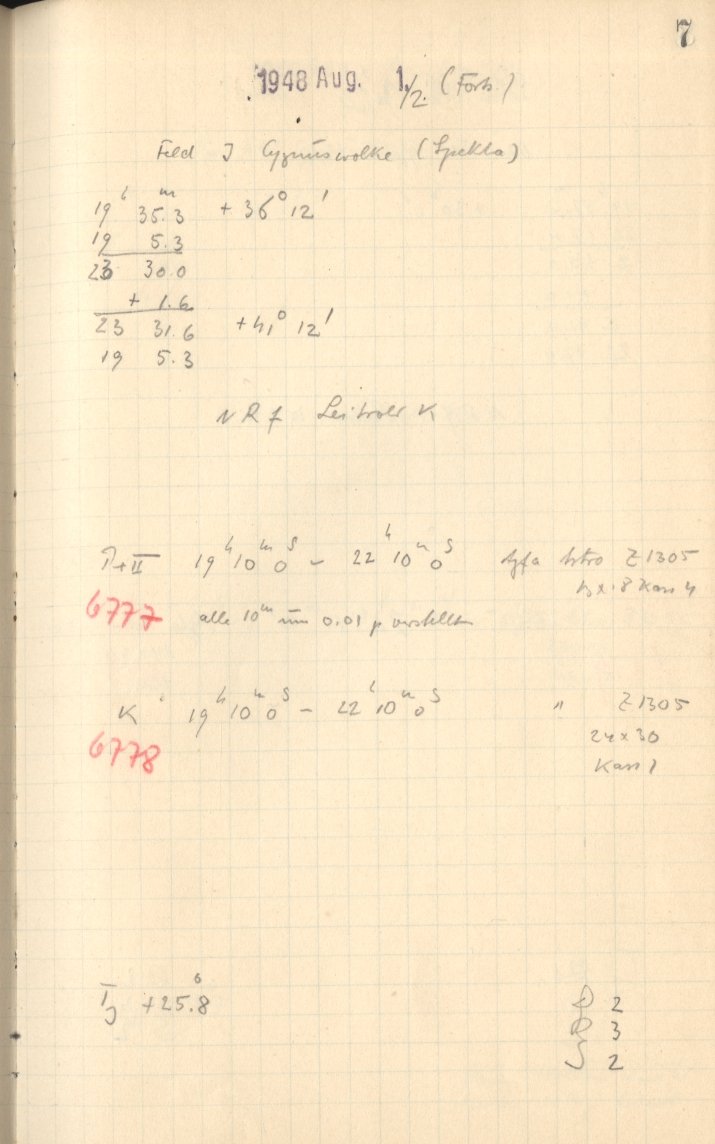 7
1948 Aug. 1./2. (Forts.)
Feld J Cygnuswolke (Spektra)
19h 35.3m + 36° 12'
19 5.3
23 30.0
+ 1.6
23 31.6 + 41° 12'
19 5.3
Leitrohr K
T+II 19h 10m 0s – 22h 10m 0s Agfa Astro Z 1305
Kass 4
6777 alle 10m um 0.01 p verstellt
K 19h 10m 0s – 22h 10m 0s " Z 1305
24 x 30
6778
Kass 1
+25.8°
2
R 3
S 2